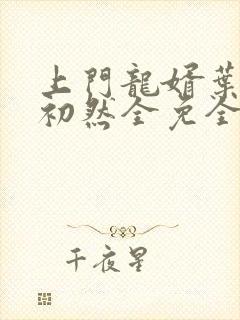 上門龍婿葉
初然全免全
千夜星